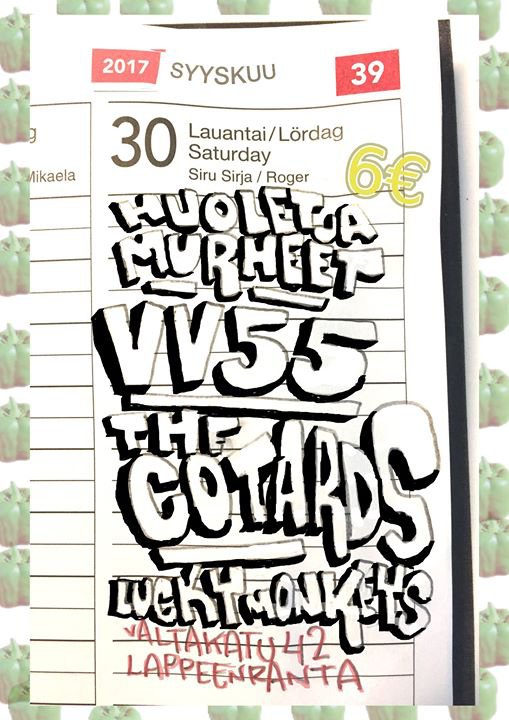 2017 SYYSKUU 39
g
30 Lauantai/Lördag
Saturday
Mikaela Siru Sirja / Roger
6€
HUOLET JA
MURHEET
VV55
THE
COTARDS
LUCKY MONKEYS
VALTAKATU 42
LAPPEENRANTA